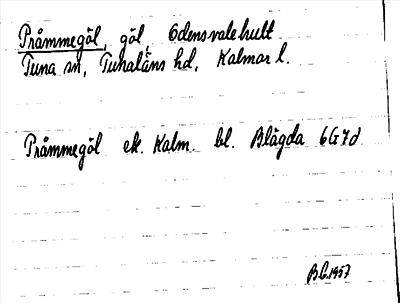 Pråmmegöl, göl, Odensvalehult
Tuna sn, Tunaläns hd, Kalmar l.
Pråmmegöl ek. Kalm. bl. Blägda 6G7d
1957